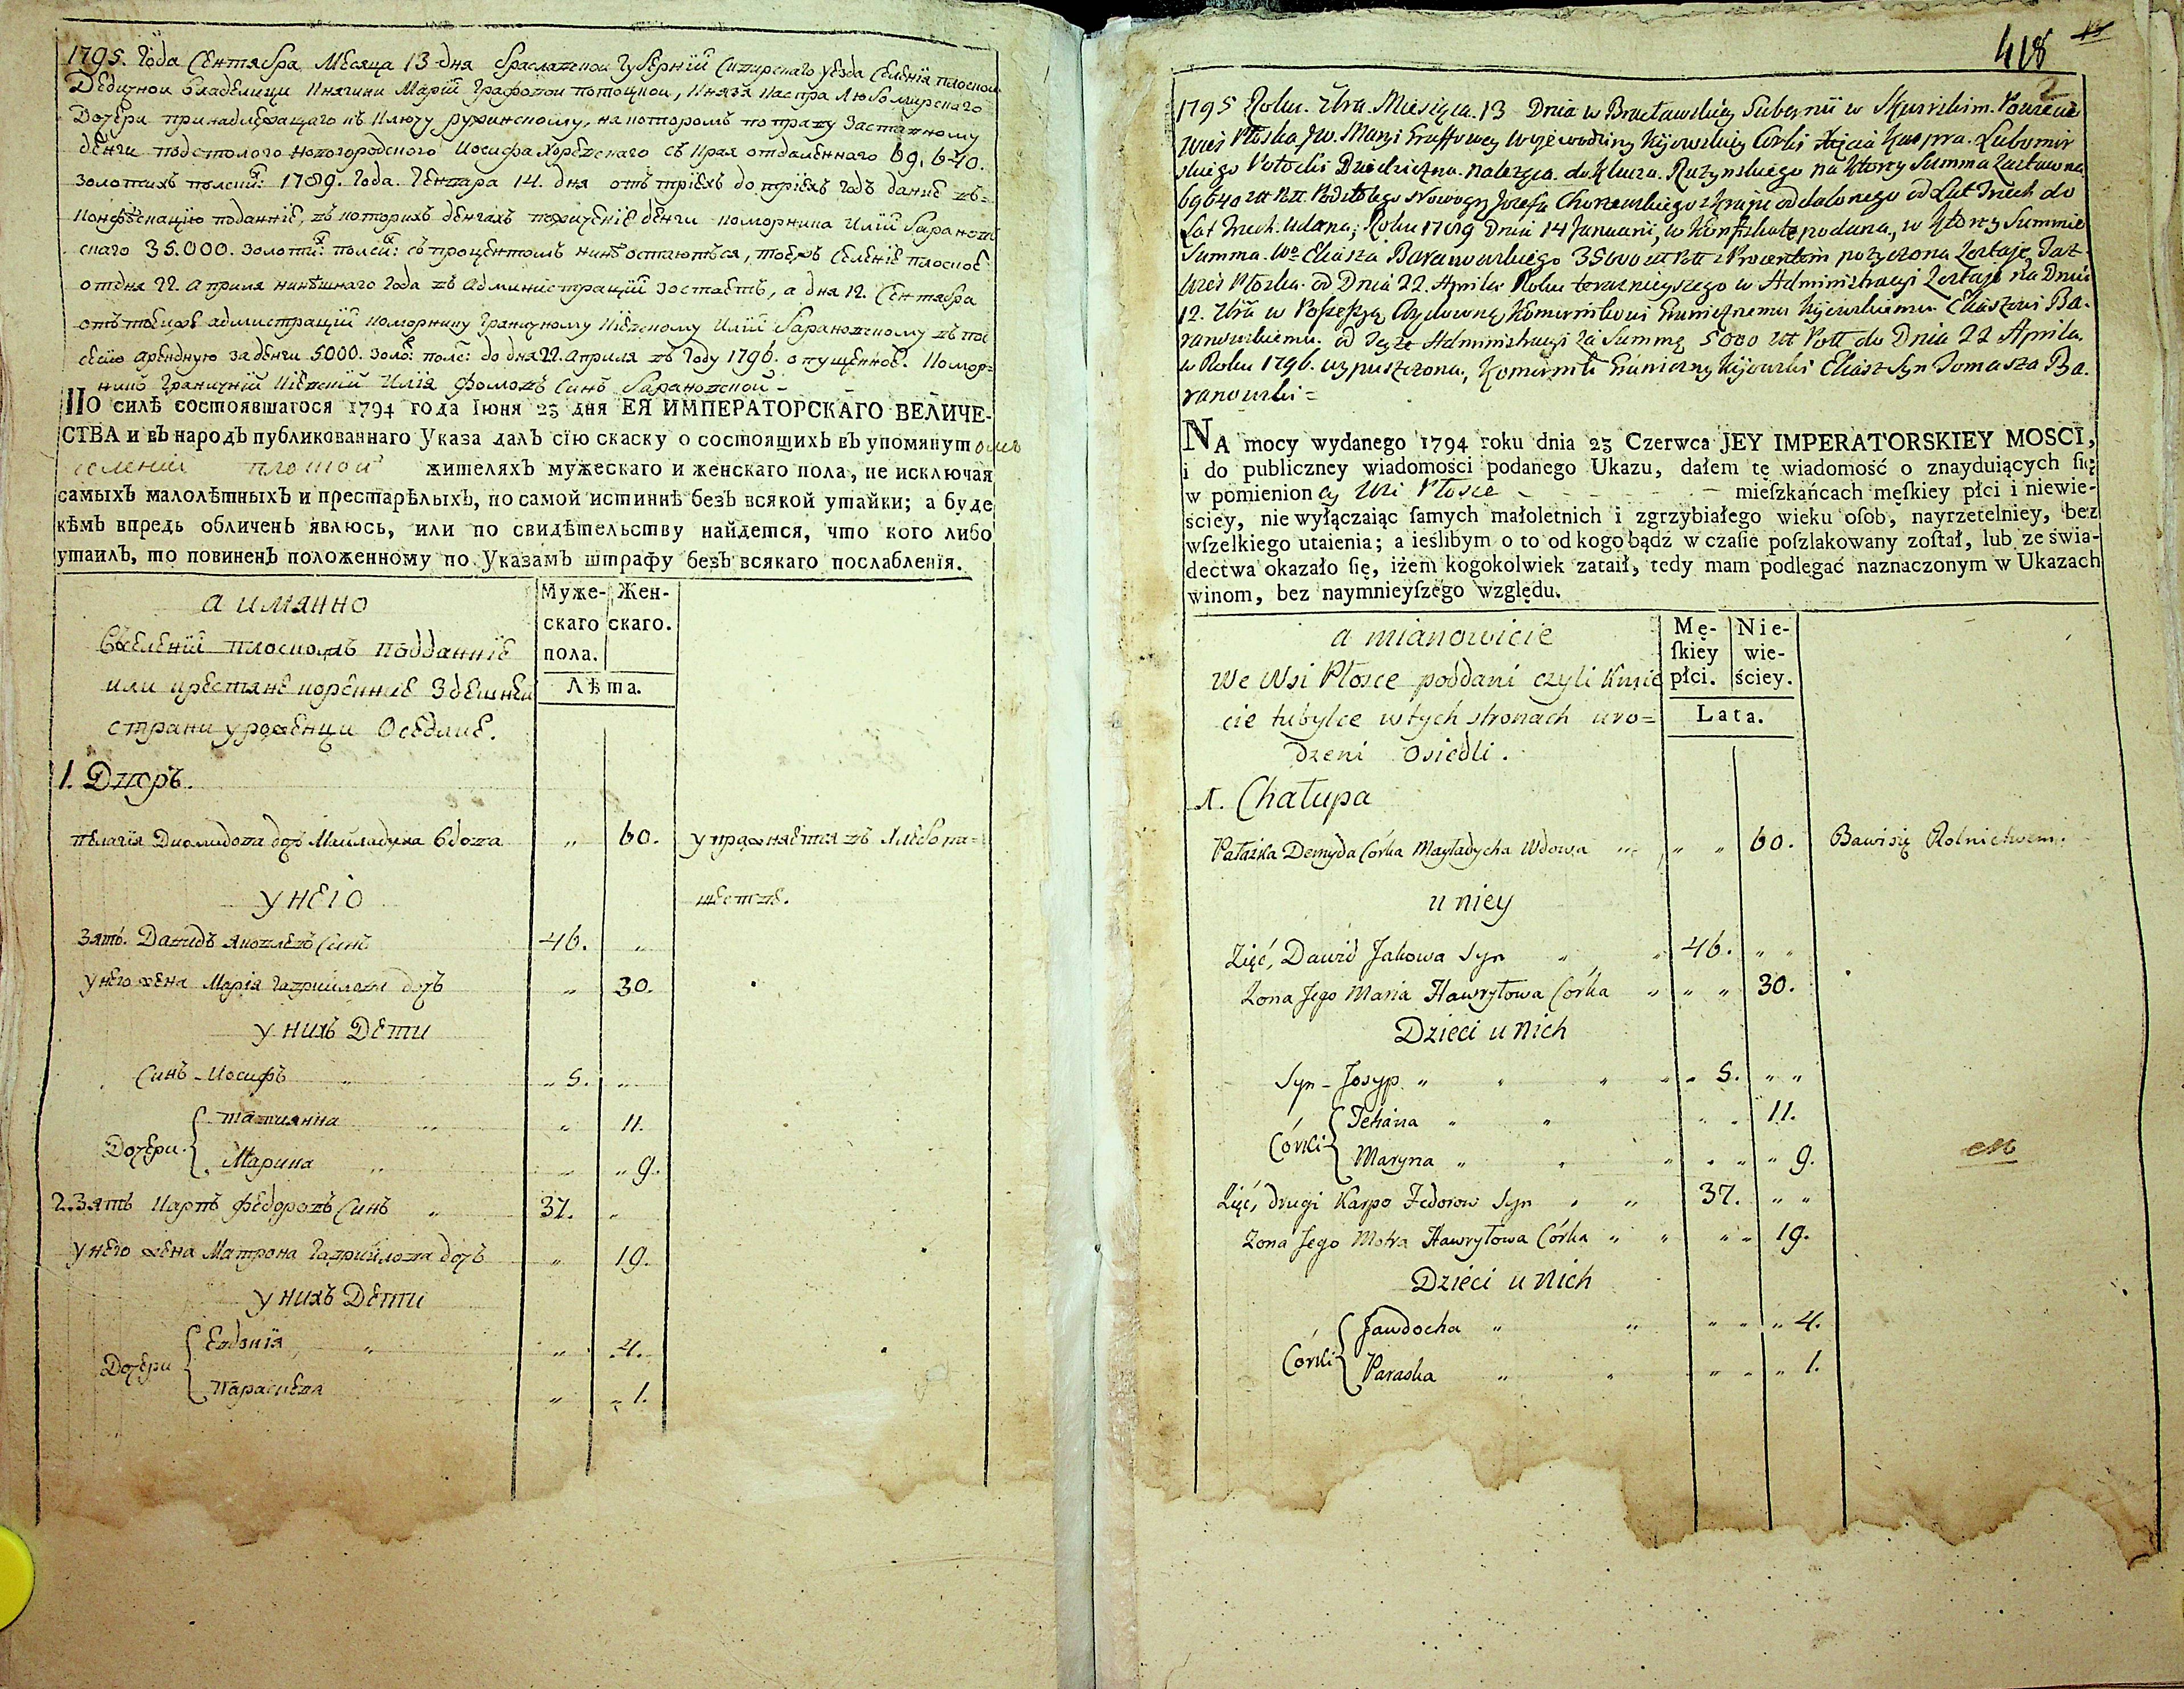 1795. Года Сентября Месяца 13 дня Браславской Губерній Сквирскаго уезда Селенія плоской
Дедичной Владелици Княгини Маріи Графовой потоцкой, Князя Каспра Любомирскаго
Дочери принадлежащаго къ Ключу ружинскому, на которомъ по праву заставному
денги подстолого Новогородского Иосифа Хоревскаго съ Края отдаленнаго 69,640.
золотихъ полски: 1789. Года. Генвара 14. дня отъ тріехъ до тріехъ годъ даніе въ=
Конфискацію подание, въ которихъ денгахъ денги коморника Иліи Баранов
скаго 35.000. золоти: полски: съ процентомъ нине остаються, тоежъ Селеніе плоское
отдня 22. Априля нинешнаго Года въ Администрацій зостаетъ, а дня 12. Сентября
отъ тоейже адмистрацій коморнику Граничному Кіевскому Иліи Барановскому въ пос
сесію арендную за денги 5000. золо: полс: до дня 22. Априля въ Году 1796. опущенное. Комор=
никъ Граничній Кіевскій Илія Фомовъ Синъ Барановской -
ПО силѣ состоявшагося 1794 года Іюня 23 дня ЕЯ ИМПЕРАТОРСКАГО ВЕЛИЧЕ-
СТВА и въ народъ публикованнаго Указа далъ сїю скаску о состоящихъ въ упомянутомъ
селеніи плоской жителяхъ мужескаго и женскаго пола, не исключая
самыхъ малолѣтныхъ и престарѣлыхъ, по самой истиннѣ безъ всякой утайки; а буде
кѣмъ впредь обличенъ явлюсь, или по свидѣтельству найдется, что кого либо
утаилъ, то повиненъ положенному по Указамъ штрафу безъ всякаго послабленїя.
а имянно
Муже- Жен-
скаго скаго.
пола.
Лѣта.
Въ селеній плоскомъ подданніе
или крестяне коренніе Здешней
страни уроженци Оседліе.
1. Дворъ.
пелагія Диомидова дочъ Майладиха вдова " 60. упражняется въ Хлебопа=
шестве.
у него
Зять. Давидъ Яковлевъ Синъ 46. "
у него жена Марія Гавриилова дочъ " 30.
у нихъ Дети
Синъ - Иосифъ " 5. "
Дочери. татиянна " 11.
Марина " 9.
2. Зять Карпъ Федоровъ Синъ 37. "
у него жена Матрона Гавриилова дочъ " 19.
у нихъ Дети
Дочери Евдокія " 4.
Параскева " 1.
418
2
1795 Roku. 7bra. Miesiąca. 13 Dnia w Bracławskiey Gubernii w Skwirskim. Powiecie
Wieś Płoska JW. Maryi Graffowey Woiewodziny Kijowskiey Corki Xięcia Kaspra. Lubomir
skiego Potocki Dziedziczna. należąca. do Klucza. Rużynskiego na ktorey Summa zastawna
69640 złt Poll. Podstolego Nowogr: Jozefa Chorzewskiego z Kraju oddalonego od Lat Trzech do
Lat Trzech. udana; Roku 1789 Dnia 14 Januarii, w Konfiskatę podana, w ktorey Summie
Summa. Wo Eliasza Baranowskiego 35000 złt Poll z Procentem pożyczona zostaje, Taż
Wieś Płoska. od Dnia 22. Aprila Roku teraznieyszego w Administracyi zostaje na Dniu
12. 7bra w Possessyą Komornikowi Granicznemu Kijowskiemu Eliaszowi Ba-
ranowskiemu. od Teyże Administracyi za Summę 5000 złt Poll do Dnia 22 Aprila.
w Roku 1796. wypuszczona, Komornik Graniczny Kijowski Eliasz Syn Tomasza Ba.
ranowski =
NA mocy wydanego 1794 roku dnia 23 Czerwca JEY IMPERATORSKIEY MOSCI,
i do publiczney wiadomosci podanego Ukazu, dałem tę wiadomość o znayduiących się
w pomienioney Wsi Płosce - - - - - - mieſzkańcach męſkiey płci i niewie-
ściey, nie wyłączaiąc ſamych małoletnich i zgrzybiałego wieku oſob, nayrzetelniey, bez
wſzelkiego utaienia; a ieślibym o to od kogo bądź w czaſie poſzlakowany zoſtał, lub ze świa-
dectwa okazało się, iżem kogokolwiek zataił, tedy mam podlegać naznaczonym w Ukazach
winom, bez naymnieyſzego względu.
a mianowicie
Mę- Nie-
ſkiey wie-
płci. ściey.
Lata.
We Wsi Płosce poddani czyli Kmie
cie tubylce w tych stronach uro=
dzeni osiedli.
1. Chałupa
Pałażka Demyda Córka Mayładycha Wdowa " " " 60. Bawi się Rolnictwem.
u niey
Zięć, Dawid Jakowa Syn " " 46. " "
Żona Jego Maria Hawryłowa Córka " " " 30.
Dzieci u Nich
Syn - Josyp " " " " " 5. " "
Córki Tetiana " " " " 11.
Maryna " " " " " " 9.
Zięć, drugi Karpo Fedorow Syn " " 37. " "
Żona Jego Motra Hawryłowa Córka " " " " 19.
Dzieci u Nich
Córki Jawdocha " " " " " 4.
Paraska " " " " " 1.